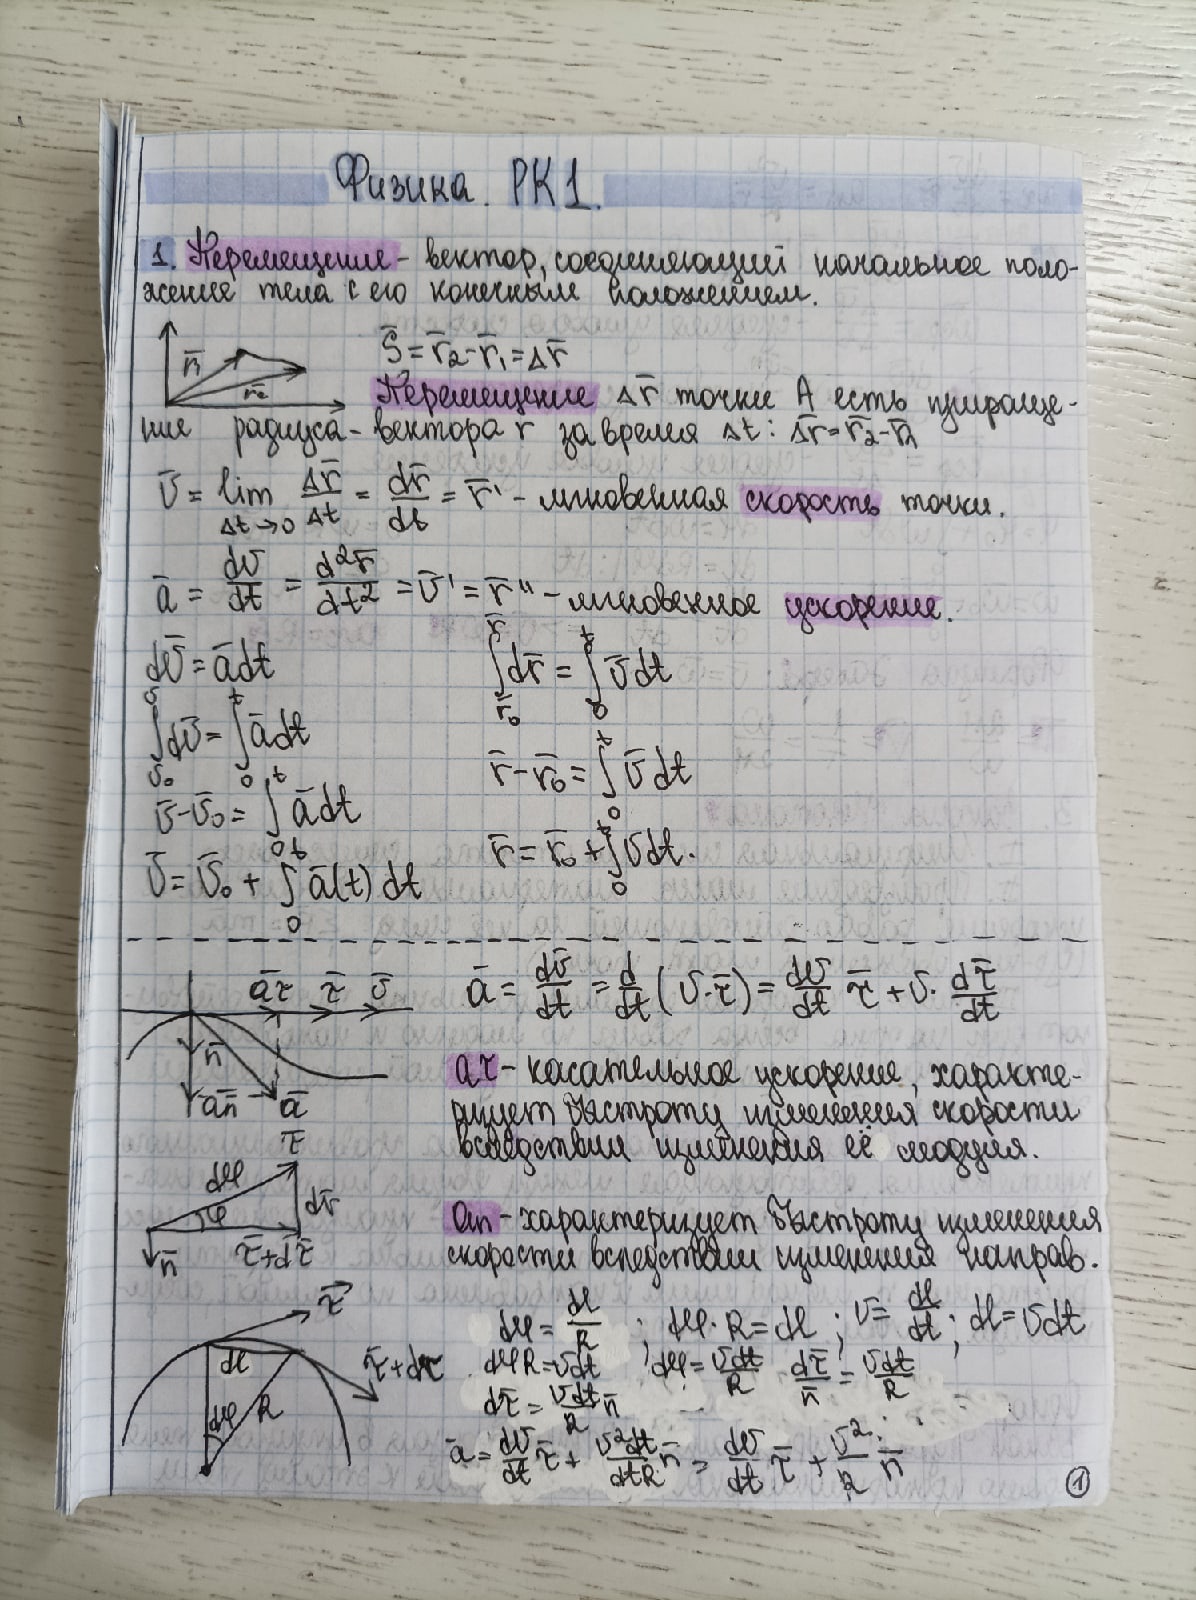 Физика. РК1.
1. Перемещение - вектор, соединяющий начальное поло-
жение тела с его конечным положением.
r̄₁
r̄₂
S̄ = r̄₂ - r̄₁ = Δr̄
Перемещение Δr̄ точки А есть прираще-
ние радиуса - вектора r за время Δt: Δr̄ = r̄₂ - r̄₁
ῡ = lim Δt→0 Δr̄/Δt = dr̄/dt = r̄' - мгновенная скорость точки.
ā = dῡ/dt = d²r̄/dt² = ῡ' = r̄'' - мгновенное ускорение.
dῡ = ādt
∫_{ῡ₀}^{ῡ} dῡ = ∫_0^t ādt
ῡ - ῡ₀ = ∫_0^t ādt
ῡ = ῡ₀ + ∫_0^t ā(t) dt
∫_{r̄₀}^{r̄} dr̄ = ∫_0^t ῡdt
r̄ - r̄₀ = ∫_0^t ῡdt
r̄ = r̄₀ + ∫_0^t ῡdt.
āτ τ̄ ῡ
n̄
an̄ ā
ā = dῡ/dt = d/dt (υ·τ̄) = dυ/dt τ̄ + υ· dτ̄/dt
aτ - касательное ускорение, характе-
ризует быстроту изменения скорости
вследствии изменения её модуля.
τ̄
dφ
φ
dτ̄
n̄
τ̄+dτ̄
an - характеризует быстроту изменения
скорости вследствии изменения направ.
τ̄
dl
τ̄+dτ̄
dφ
R
dφ = dl/R ; dφ·R = dl ; υ = dl/dt ; dl = υdt
dφR = υdt ; dφ = υdt/R dτ̄/n̄ = υdt/R
dτ̄ = υdt/R n̄
ā = dυ/dt τ̄ + υ²dt/dtR n̄ = dυ/dt τ̄ + υ²/R n̄
1